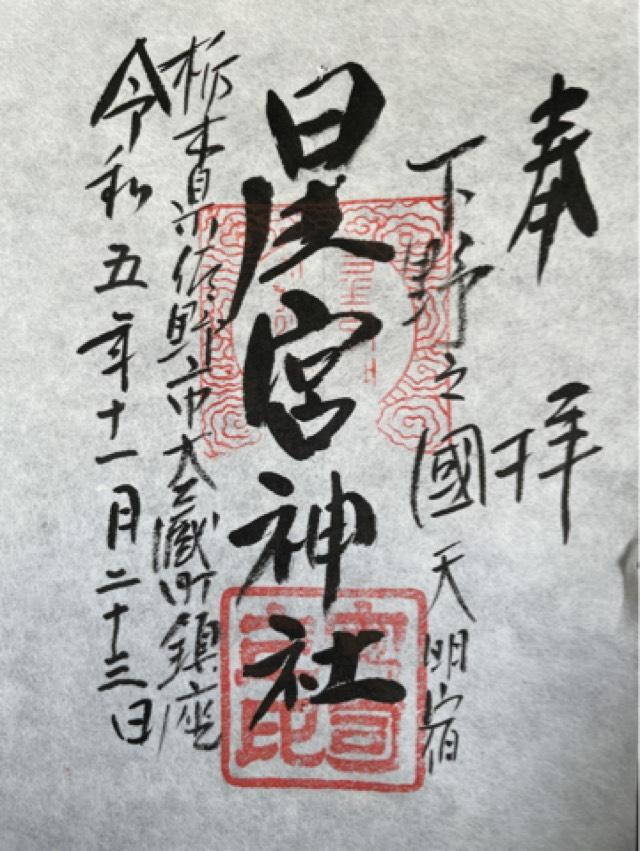 奉拝
下野之國天明宿
星宮神社
栃木県佐野市大蔵町鎮座
令和五年十一月二十三日
宮司之印